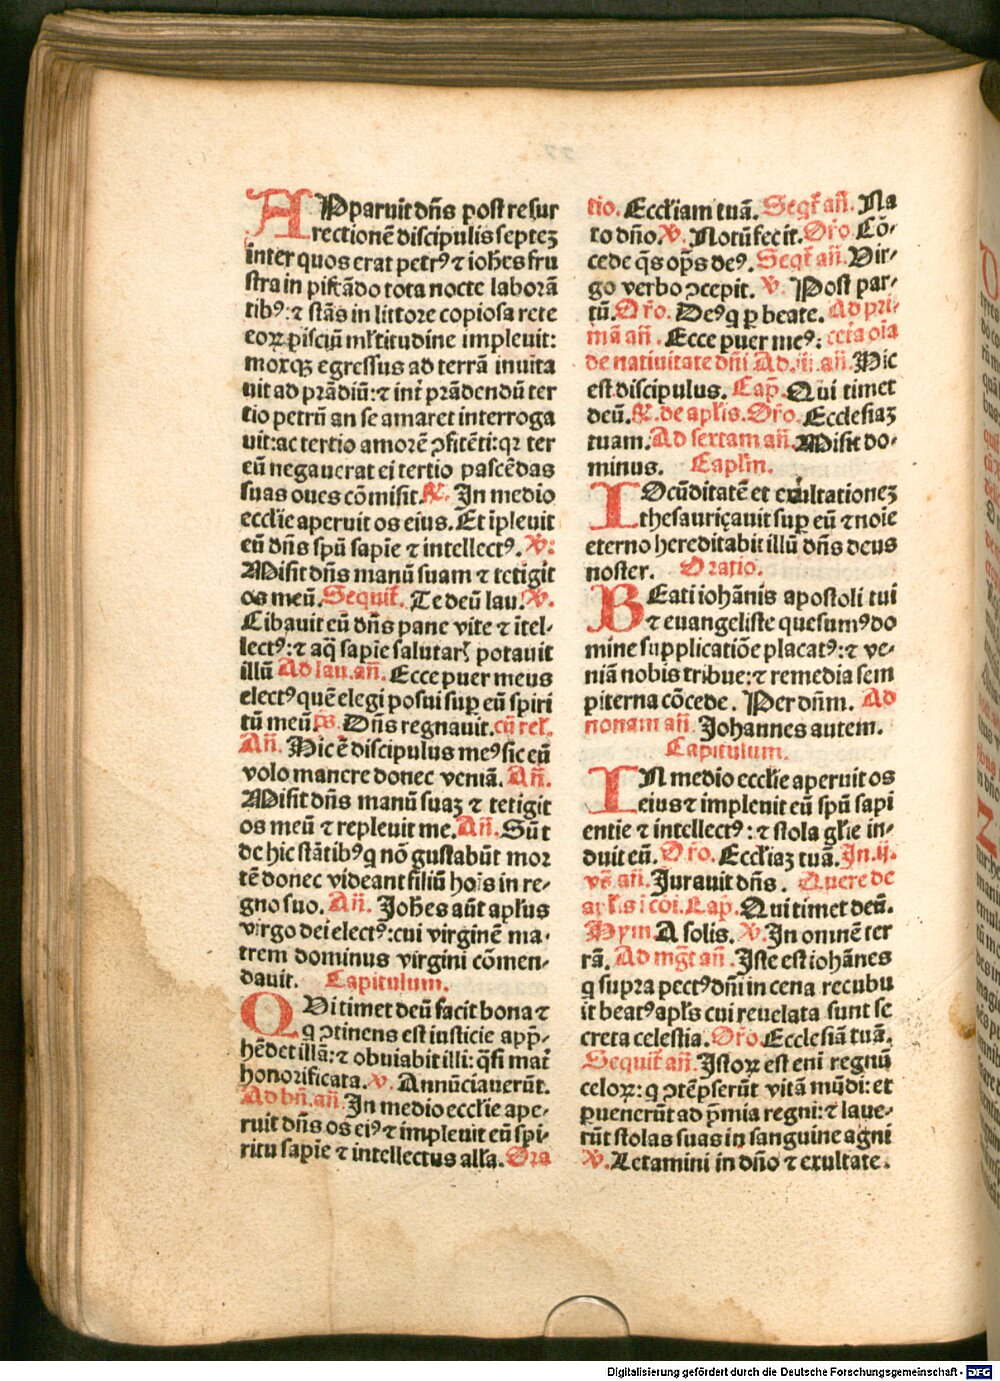 APparuit dñs post resur
rectionē discipulis septeꝫ
inter quos erat petrꝰ ⁊ ioh̄es fru
stra in piscādo tota nocte laborā
tibꝰ: ⁊ stās in littore copiosa rete
eoꝝ pisciū ml̄titudine impleuit:
moxqꝫ egressus ad terrā inuita
uit ad prādiū: ⁊ int̄ prādendū ter
tio petrū an se amaret interroga
uit: ac tertio amorē ꝯfitēti: qꝛ ter
eū negauerat ei tertio pascēdas
suas oues cōmisit. ℟. In medio
eccl̄ie aperuit os eius. Et īpleuit
eū dñs spū sapīe ⁊ intellectꝰ. ℣:
Misit dñs manū suam ⁊ tetigit
os meū. Sequit̄. Te deū lau. ℣.
Cibauit eū dñs pane vite ⁊ ītel-
lectꝰ: ⁊ aq̄ sapīe salutarꝭ potauit
illū Ad lau. añ. Ecce puer meus
electꝰ quē elegi posui suꝑ eū spiri
tū meū ps. Dñs regnauit. cū rel̄.
Añ. Hic ē discipulus meꝰ sic eū
volo manere donec veniā. Añ.
Misit dñs manū suaꝫ ⁊ tetigit
os meū ⁊ repleuit me. Añ. Sūt
de hic stātibꝰ q̄ nō gustabūt mor
tē donec videant filiū hoīs in re-
gno suo. Añ. Joh̄es aūt apl̄us
virgo dei electꝰ: cui virginē ma-
trem dominus virgini cōmen-
dauit. Capitulum.
QUi timet deū facit bona ⁊
q̄ ꝯtinens est iusticie app̄-
hēdet illā: ⁊ obuiabit illi: q̄si mat̄
honorificata. ℣. Annūciauerūt.
Ad bñ. añ. In medio eccl̄ie ape-
ruit dñs os eiꝰ ⁊ impleuit eū spi-
ritu sapīe ⁊ intellectus all̄a. Ora
tio. Eccl̄iam tuā. Seqt̄ añ. Na
to dño. ℣. Notū fecit. Or̄o. Cō-
cede q̄s op̄s deꝰ. Seqt̄ añ. Vir-
go verbo ꝯcepit. ℣. Post par-
tū. Or̄o. Deꝰ q ꝑ beate. Ad pri-
mā añ. Ecce puer meꝰ: cet̄a oīa
de natiuitate dñi Ad .iij. añ. Hic
est discipulus. Cap̄. Qui timet
deū. ℟. de apl̄is. Or̄o. Ecclesiaꝫ
tuam. Ad sextam añ. Misit do-
minus. Capl̄m.
IOcūditatē et exultationeꝫ
thesauriçauit suꝑ eū ⁊ noīe
eterno hereditabit illū dñs deus
noster. Oratio.
BEati iohānis apostoli tui
⁊ euangeliste quesumꝰ do
mine supplicatiōe placatꝰ: ⁊ ve-
niā nobis tribue: ⁊ remedia sem
piterna cōcede. Per dñm. Ad
nonam añ. Johannes autem.
Capitulum.
IN medio eccl̄ie aperuit os
eius ⁊ impleuit eū spū sapi
entie ⁊ intellectꝰ: ⁊ stola gl̄ie in-
duit eū. Or̄o. Eccl̄iaꝫ tuā. In .ij.
vs̄ añ. Jurauit dñs. Quere de
apl̄is i cōi. Cap̄. Qui timet deū.
Hym̄. A solis. ℣. In omnē ter
rā. Ad mgt̄ añ. Iste est iohānes
q supra pectꝰ dñi in cena recubu
it beatꝰ apl̄s cui reuelata sunt se
creta celestia. Or̄o. Ecclesiā tuā.
Sequit̄ añ. Istoꝝ est eni regnū
celoꝝ: q ꝯtēpserūt vitā mūdi: et
ꝑuenerūt ad p̄mia regni: ⁊ laue-
rūt stolas suas in sanguine agni
℣. Letamini in dño ⁊ exultate.
Digitalisierung gefördert durch die Deutsche Forschungsgemeinschaft - DFG